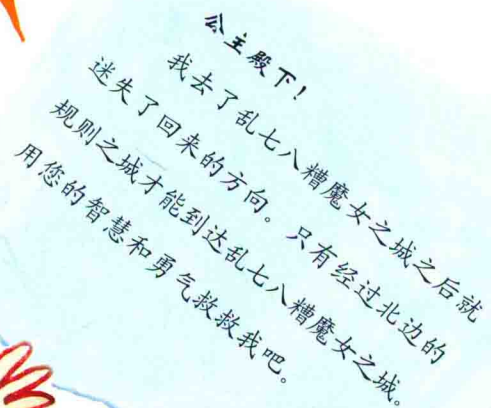 公主殿下！
我去了乱七八糟魔女之城之后就
迷失了回来的方向。只有经过北边的
规则之城才能到达乱七八糟魔女之城。
用您的智慧和勇气救救我吧。